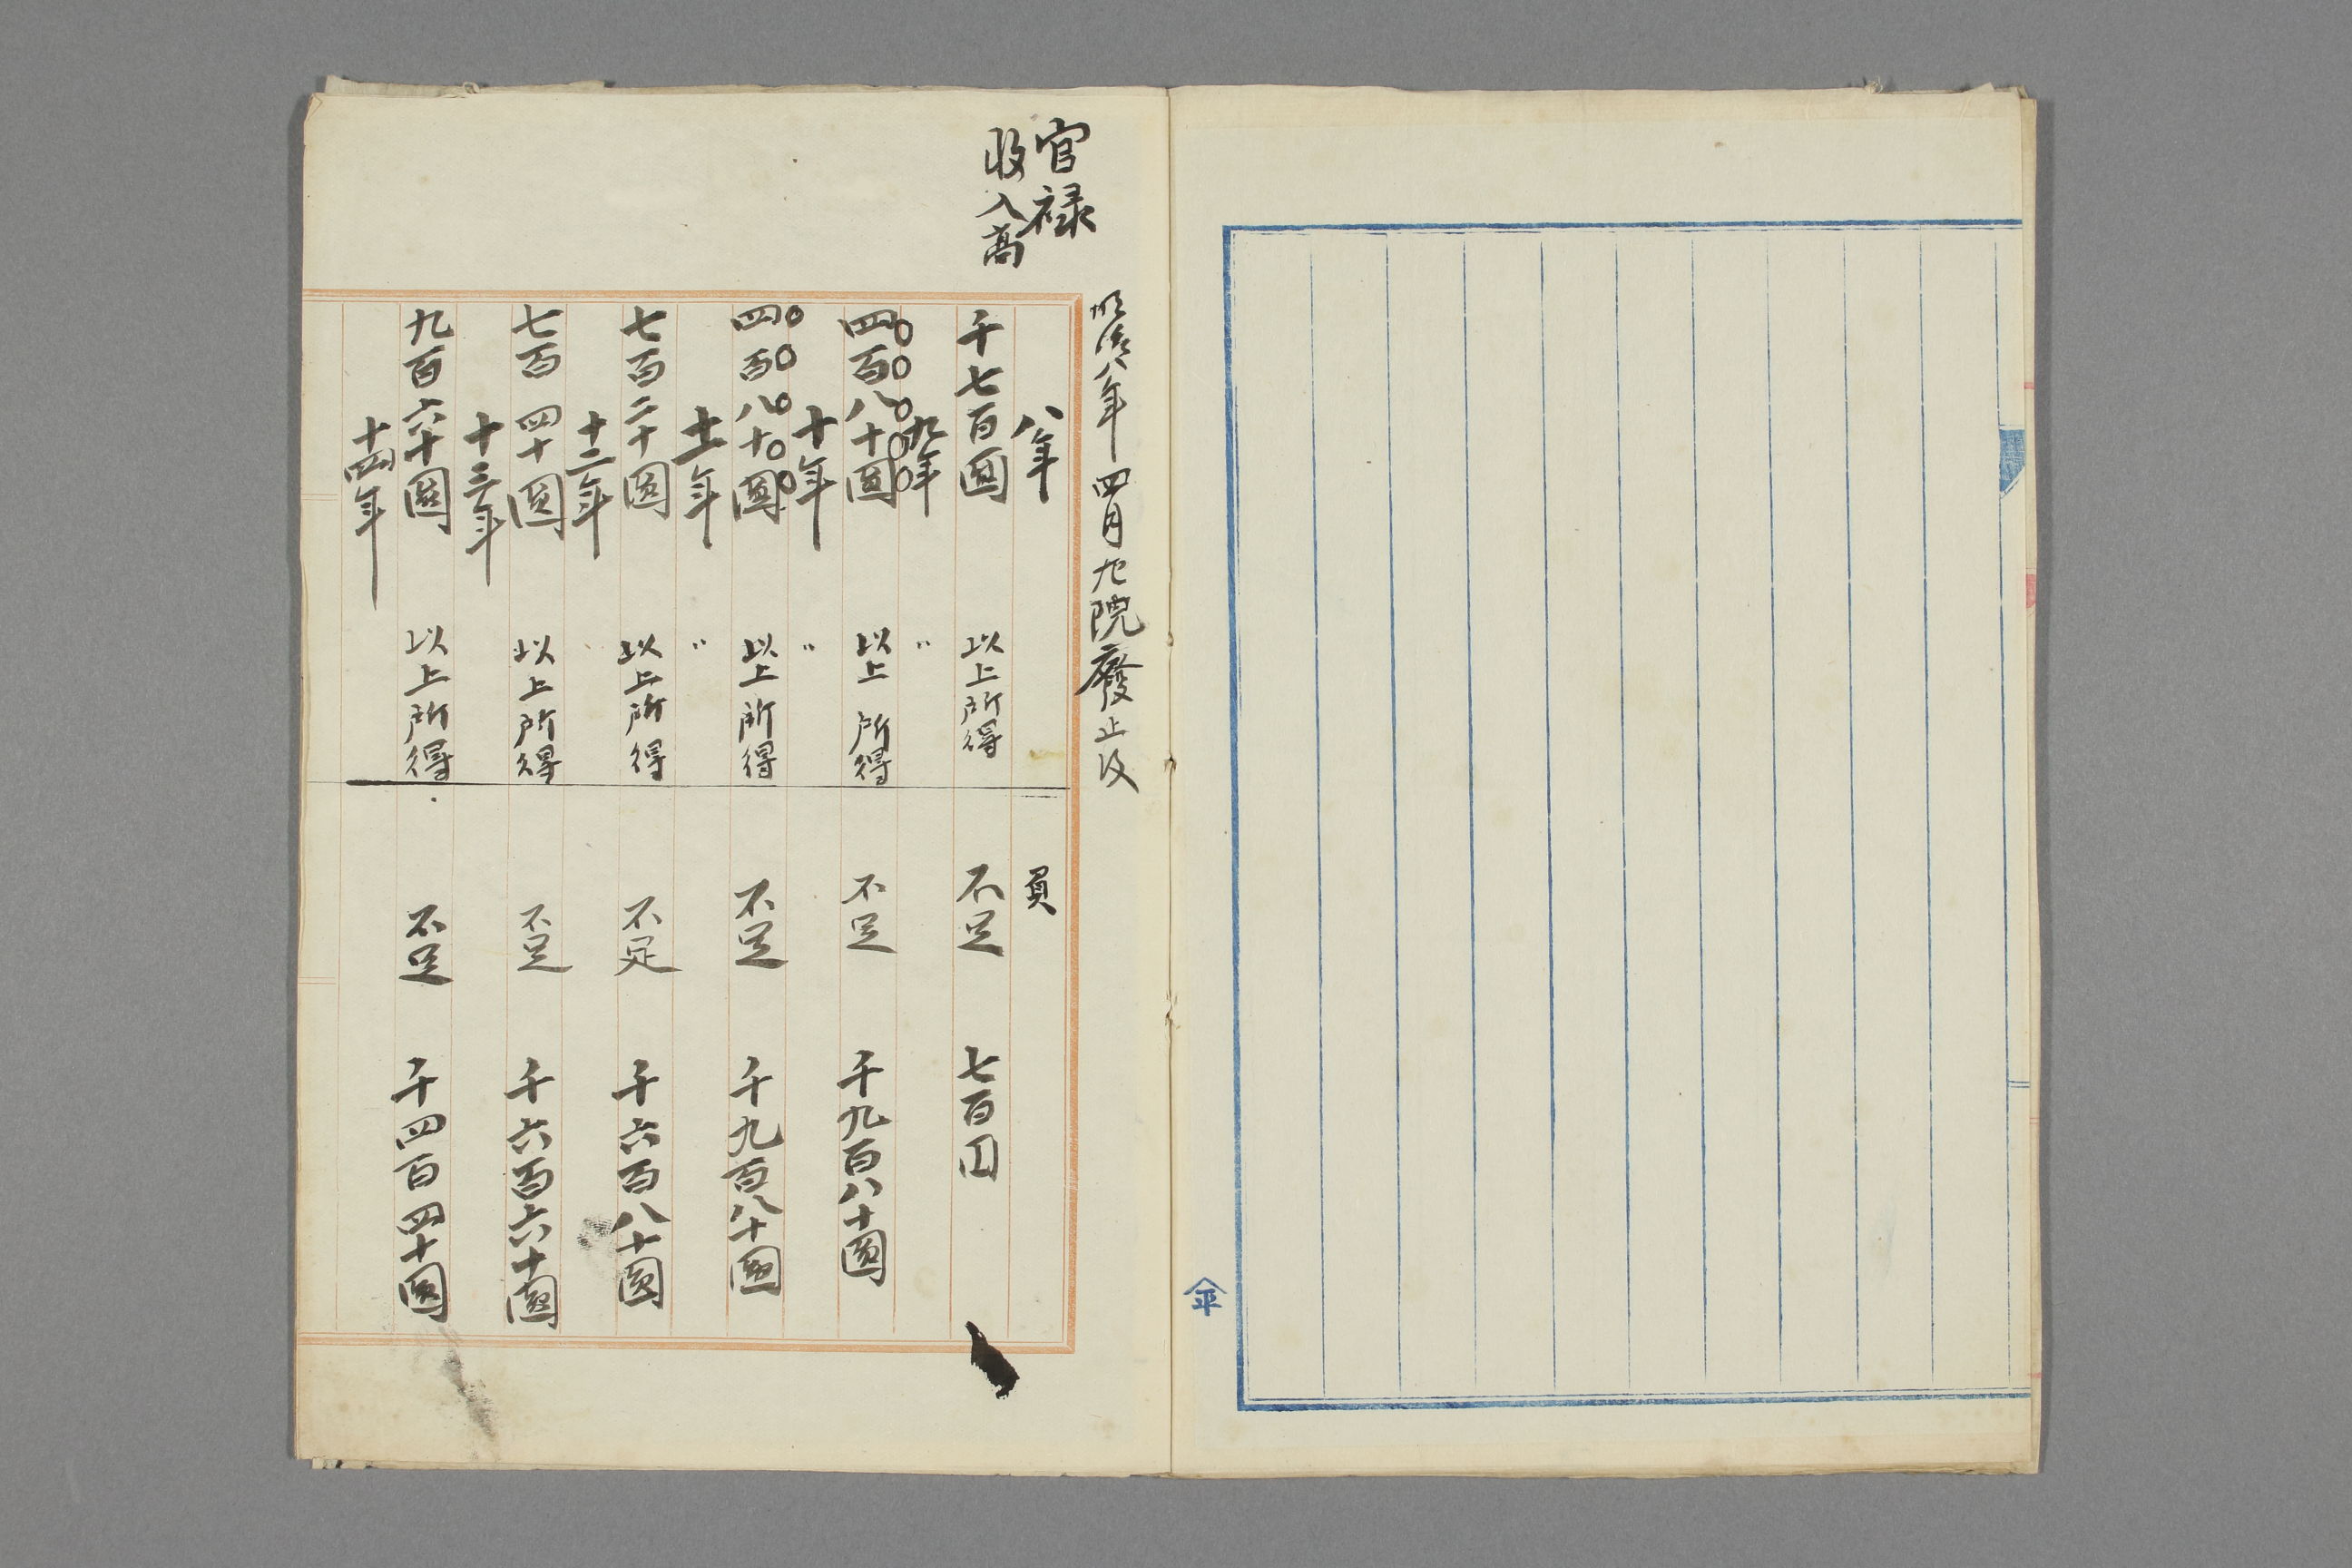 官禄
收入高
明治八年四月左院廢止後
八年
負
千七百圓
以上所得
不足
七百円
九年
〃
四百八十圓
〇〇〇〇〇
以上所得
不足
千九百八十圓
十年
〃
四百八十圓
〇〇〇〇〇
以上所得
不足
千九百八十圓
十一年
〃
七百二十圓
以上所得
不足
千六百八十圓
十二年
七百四十圓
以上所得
不足
千六百六十圓
十三年
九百六十圓
以上所得
不足
千四百四十圓
十四年
平